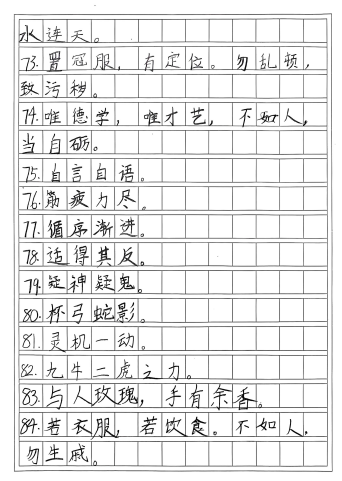 水连天。
73.置冠服，有定位。勿乱顿，
致污秽。
74.唯德学，唯才艺，不如人，
当自砺。
75.自言自语。
76.筋疲力尽。
77.循序渐进。
78.适得其反。
79.疑神疑鬼。
80.杯弓蛇影。
81.灵机一动。
82.九牛二虎之力。
83.与人玫瑰，手有余香。
84.若衣服，若饮食。不如人，
勿生戚。